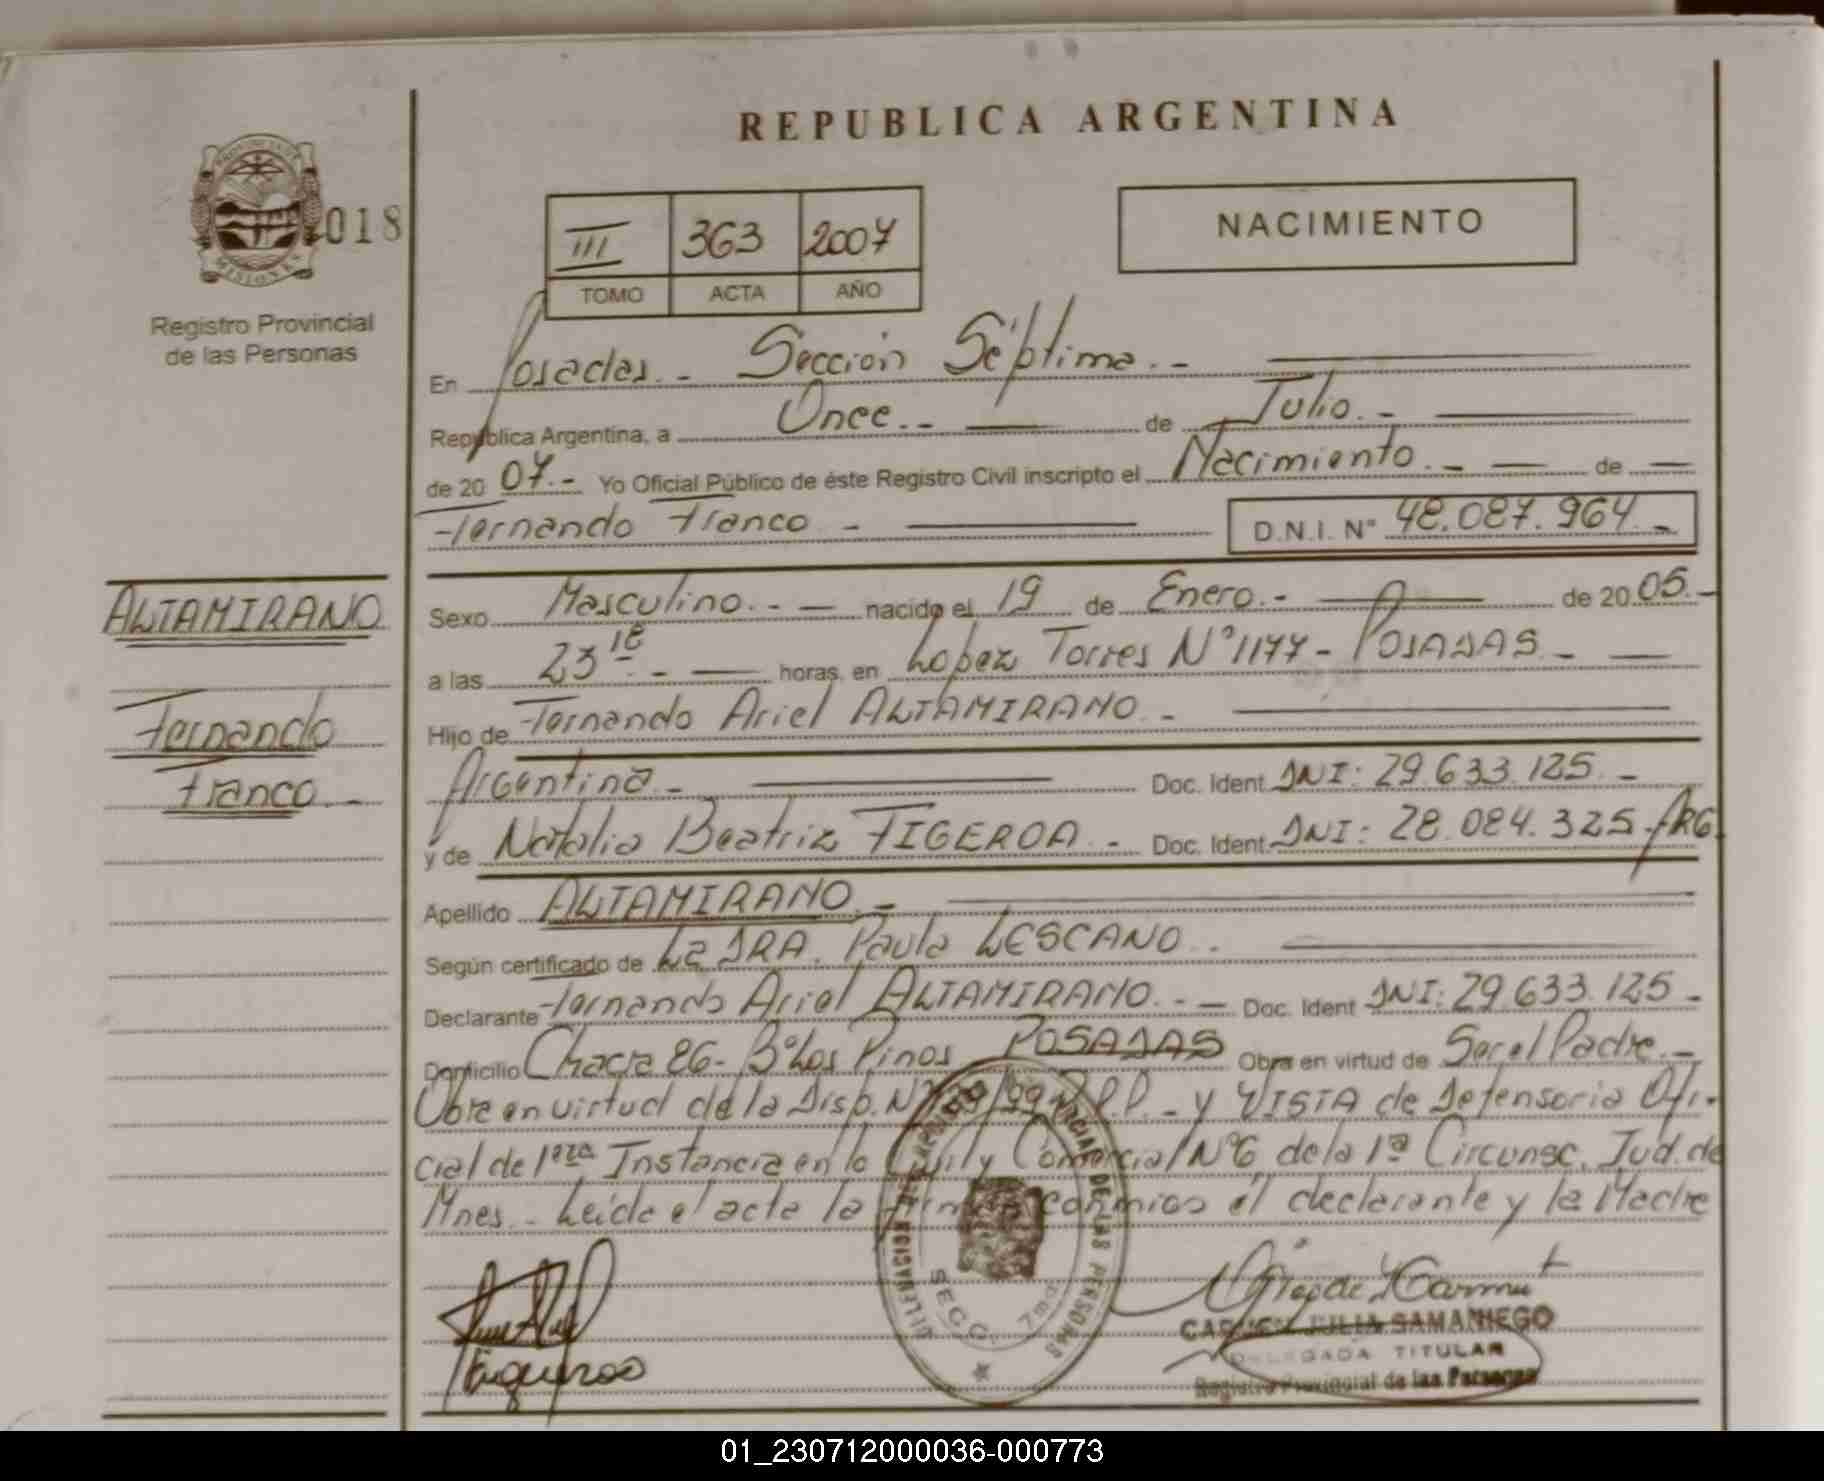 REPUBLICA ARGENTINA
MISIONES
018
Registro Provincial
de las Personas
III 363 2007
TOMO ACTA AÑO
NACIMIENTO
En Posadas.- Sección Séptima.-
República Argentina, a Once.- de Julio.-
de 2007.- Yo Oficial Público de éste Registro Civil inscripto el Nacimiento.- de
Fernando Franco - D.N.I. N° 48.087.964.-
ALTAMIRANO
Fernando
Franco.-
Sexo Masculino.- nacido el 19 de Enero.- de 2005.-
a las 23 18.- horas, en Lopez Torres N° 1177 - POSADAS.-
Hijo de Fernando Ariel ALTAMIRANO.-
Argentina.- Doc. Ident. DNI: 29.633.125.-
y de Natalia Beatriz FIGEROA.- Doc. Ident. DNI: 28.084.325.- ARG.
Apellido ALTAMIRANO.-
Según certificado de La DRA. Paula LESCANO..
Declarante Fernando Ariel ALTAMIRANO.- Doc. Ident DNI: 29.633.125.-
Domicilio Chacra 86- B° Los Pinos POSADAS Obra en virtud de Ser el Padre.-
Obre en virtud de la Disp. N° /99 R.P.P.- y VISTA de Defensoria Ofi-
cial de 1era Instancia en lo Civil y Comercial N°6 de la 1ª Circunsc. Jud. de
Mnes.- Leída el acta la firman conmigo el declarante y la Madre
DELEGACION REGISTRO PROVINCIAL DE LAS PERSONAS
SECC. 7ma.
Figueroa
CARMEN JULIA SAMANIEGO
DELEGADA TITULAR
Registro Provincial de las Personas
01_230712000036-000773